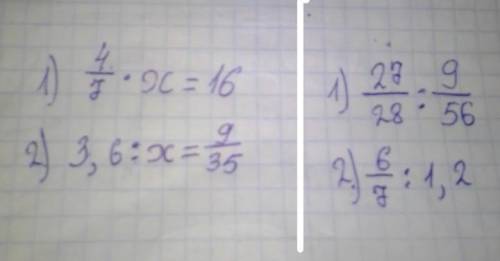 1) 4/7 · x = 16
2) 3,6 : x = 9/35
1) 27/28 : 9/56
2) 6/7 : 1,2